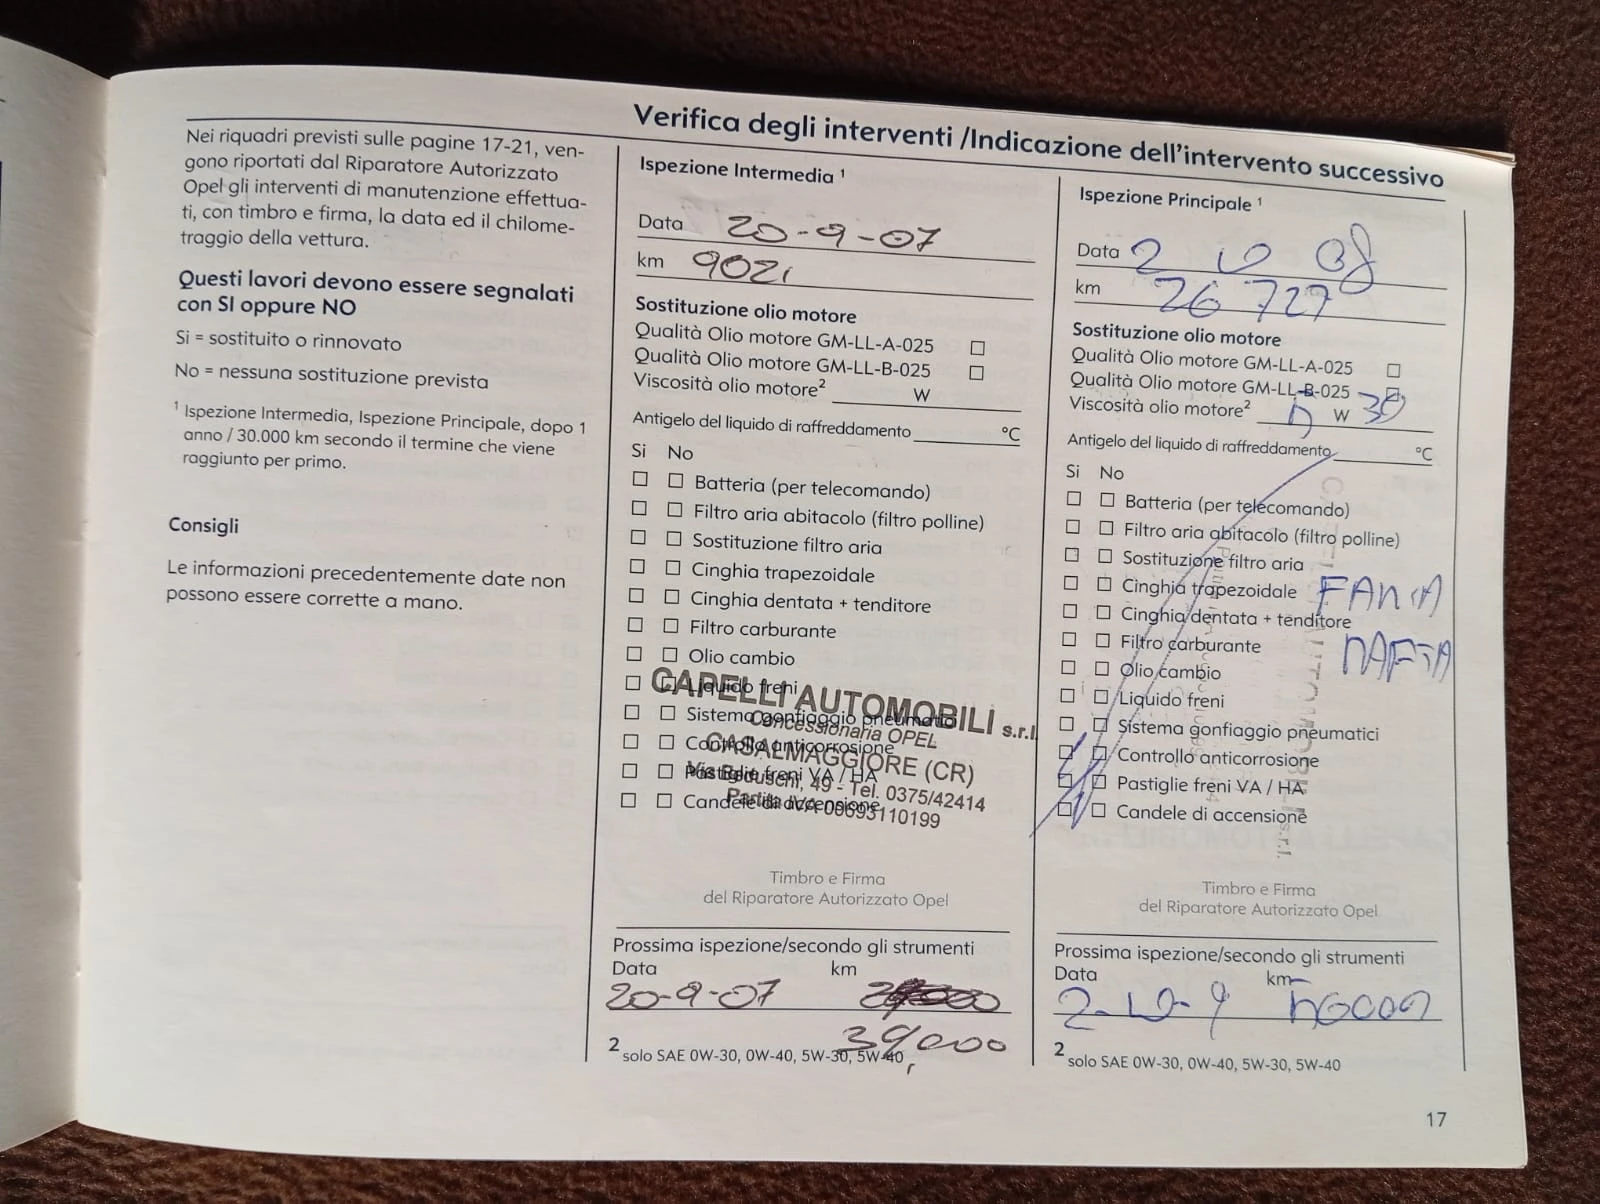 Verifica degli interventi /Indicazione dell'intervento successivo
Nei riquadri previsti sulle pagine 17-21, ven-
gono riportati dal Riparatore Autorizzato
Opel gli interventi di manutenzione effettua-
ti, con timbro e firma, la data ed il chilome-
traggio della vettura.
Questi lavori devono essere segnalati
con SI oppure NO
Si = sostituito o rinnovato
No = nessuna sostituzione prevista
1 Ispezione Intermedia, Ispezione Principale, dopo 1
anno / 30.000 km secondo il termine che viene
raggiunto per primo.
Consigli
Le informazioni precedentemente date non
possono essere corrette a mano.
Ispezione Intermedia 1
Data 20-9-07
km
Sostituzione olio motore
Qualità Olio motore GM-LL-A-025
Qualità Olio motore GM-LL-B-025
Viscosità olio motore2 W
Antigelo del liquido di raffreddamento °C
Si No
Batteria (per telecomando)
Filtro aria abitacolo (filtro polline)
Sostituzione filtro aria
Cinghia trapezoidale
Cinghia dentata + tenditore
Filtro carburante
Olio cambio
Liquido freni
Sistema gonfiaggio pneumatici
Controllo anticorrosione
Pastiglie freni VA / HA
Candele di accensione
CAPELLI AUTOMOBILI s.r.l.
Concessionaria OPEL
CASALMAGGIORE (CR)
49 - Tel. 0375/42414
Partita IVA 00693110199
Timbro e Firma
del Riparatore Autorizzato Opel
Prossima ispezione/secondo gli strumenti
Data km
20-9-07
39,000
2 solo SAE 0W-30, 0W-40, 5W-30, 5W-40
Ispezione Principale 1
Data 2 10 08
km 26 727
Sostituzione olio motore
Qualità Olio motore GM-LL-A-025
Qualità Olio motore GM-LL-B-025
Viscosità olio motore2 W 30
Antigelo del liquido di raffreddamento °C
Si No
Batteria (per telecomando)
Filtro aria abitacolo (filtro polline)
Sostituzione filtro aria
Cinghia trapezoidale
Cinghia dentata + tenditore
Filtro carburante NAFTA
Olio cambio
Liquido freni
Sistema gonfiaggio pneumatici
Controllo anticorrosione
Pastiglie freni VA / HA
Candele di accensione
Timbro e Firma
del Riparatore Autorizzato Opel
Prossima ispezione/secondo gli strumenti
Data km
2-10-9
2 solo SAE 0W-30, 0W-40, 5W-30, 5W-40
17